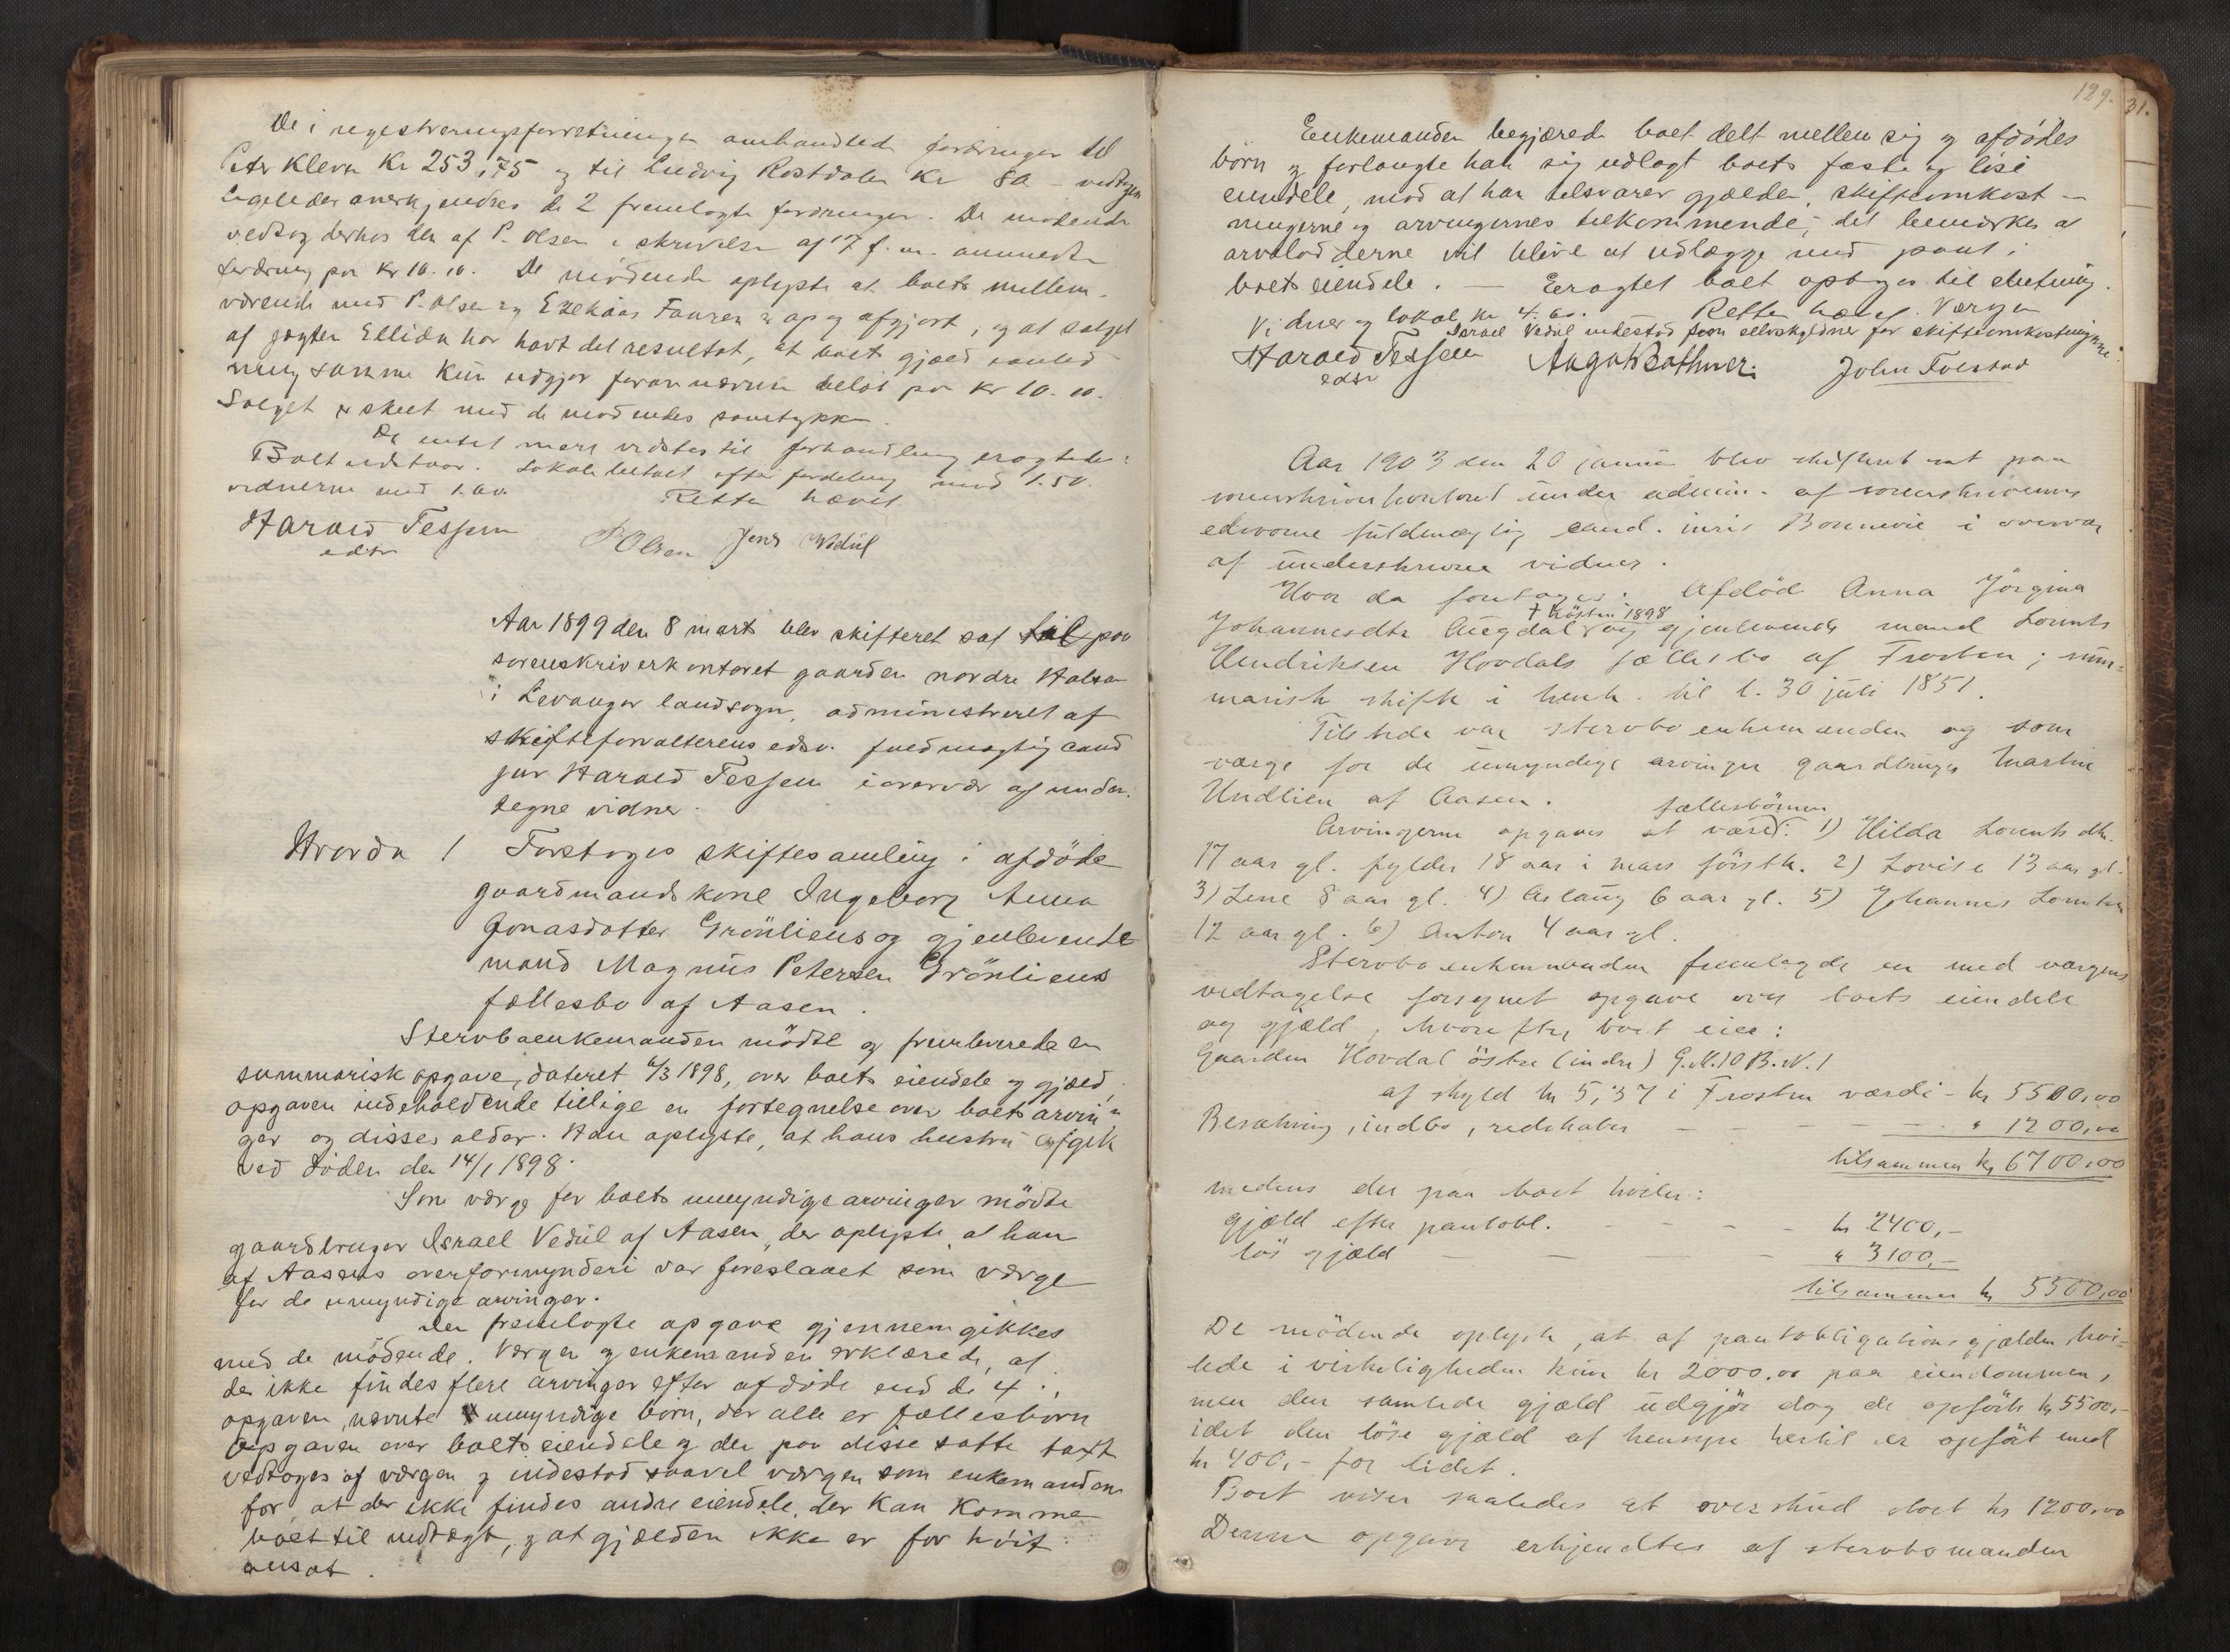 De i registreringsforretningen omhandlede fordringer til
Peter Kleven Kr 253,75 og til Ludvig Rostdalen Kr 80 – vedtoges
Ligeledes anerkjendtes de 2 fremlagte fordringer. De mødende
vedtog derhos den af P. Olsen i skrivelse af 17 f. m. anmeldte
fordring paa Kr 10.10. De mødende oplyste at boets mellem-
værende med P. Olsen og Fauren er op og afgjort, og at salget
af jagten Ellida har havt det resultat, at boets gjæld
samme kun udgjør foran nævnte beløb paa Kr 10.10.
Salget er skeet med de mødendes samtykke.
Da intet mere vidstes til forhandling eragtedes:
Boet udstaar. Lokale betalt efter fordeling med 1.50.
vidnerne med 1.00. Retten hævet
Harald Tessem
edsv
P Olsen Jens Vedul
Aar 1899 den 8 marts blev skifteret sat paa
sorenskriverkontoret gaarden nordre Halsan
i Levanger landsogn, administreret af
skifteforvalterens edsv. fuldmægtig cand
jur Harald Tessem i overvær af under-
tegne vidner.
Hvorda / Foretoges skiftesamling i afdöde
gaardmandskone Ingeborg Anna
Jonasdatter Grönliens og gjenlevende
mand Magnus Petersen Grönliens
fællesbo af Aasen.
Stervboenkemanden mödte og fremleverede en
summarisk opgave, dateret 6/3 1898, over boets eiendele og gjæld,
opgaven indeholdende tillige en fortegnelse over boets arvin-
ger og disses alder. Han oplyste, at hans hustru afgik
ved döden den 14/1 1898.
Som værge for boets umyndige arvinger mödte
gaardbruger Israel Vedul af Aasen, der oplyste at han
af Aasens overformynderi var foreslaaet som værge
for de umyndige arvinger.
Den fremlagte opgave gjennemgikkes
med de mödende. Værgen og enkemanden erklærede, at
der ikke findes flere arvinger efter afdöde end de 4 i
opgaven nævnte umyndige börn, der alle er fællesbörn
Opgaven over boets eiendele og den paa disse satte taxt
vedtoges af værgen og indestod saavel værgen som enkemanden
for, at der ikke findes andre eiendele, der kan komme
boet til indtægt, og at gjælden ikke er for höit
ansat.
129.
31.
Enkemanden begjærede boet delt mellem sig og afdödes
börn og forlangte han sig udlagt boets faste og löse
eiendele, mod at han tilsvarer gjælden, skifteomkost-
ningerne og arvingernes tilkommende; det bemærkes at
arvelodderne vil blive at udlægge med pant i
boets eiendele. — Eragtet boet optoges til slutning.
Vidner og lokal kr 4.60. Retten hævet. Værgen
Israel Vedul indestod som selvskyldner for skifteomkostningerne.
Harald Tessem
edsv
August Bathner. John Foersad
Aar 1903 den 20 januar blev skifteret sat paa
sorenskriverkontoret under admin. af sorenskriverens
edsvorne fuldmægtig cand. juris Bonnevie i overvær
af underskrevne vidner.
Hvor da foretoges: Afdöd Anna Jörgina
† hösten 1898
Johannesdtr Augdal og gjenlevende mand Lorents
Hendriksen Hovdals fællesbo af Frosten; sum-
marisk skifte i henh. til l. 30 juli 1851.
Tilstede var stervboenkemanden og som
værge for de umyndige arvinger gaardbruger Martin
Undlien af Aasen.
fællesbörnene
Arvingerne opgaves at være: 1) Hilda Lorentsdtr.
17 aar gl. fylder 18 aar i mars förstk. 2) Lovise 13 aar gl.
3) Lene 8 aar gl. 4) Aslaug 6 aar gl. 5) Johannes Lorentsen
12 aar gl. 6) Anton 4 aar gl.
Stervboenkemanden fremlagde en med værgens
vedtagelse forsynet opgave over boets eiendele
og gjæld, hvorefter boet eier:
Gaarden Hovdal östre (indre) G.N. 10 B.N. 1
af skyld kr 5,37 i Frosten værdi - kr 5500,00
Besætning, indbo, redskaber — — — — " 1200,00
tilsammen kr 6700,00
medens der paa boet hviler:
gjæld efter pantobl. - - - - kr 2400,-
lös gjæld — — — — " 3100,-
tilsammen kr 5500,00
De mödende oplyste, at af pantobligationsgjælden hvi-
lede i virkeligheden kun kr 2000.00 paa eiendommen,
men den samlede gjæld udgjör dog de opförte kr 5500,-
idet den löse gjæld af hensyn hertil er opfört med
kr 400,- for lidet.
Boet viser saaledes et overskud stort kr 1200.00
Denne opgave erkjendtes af stervbomanden